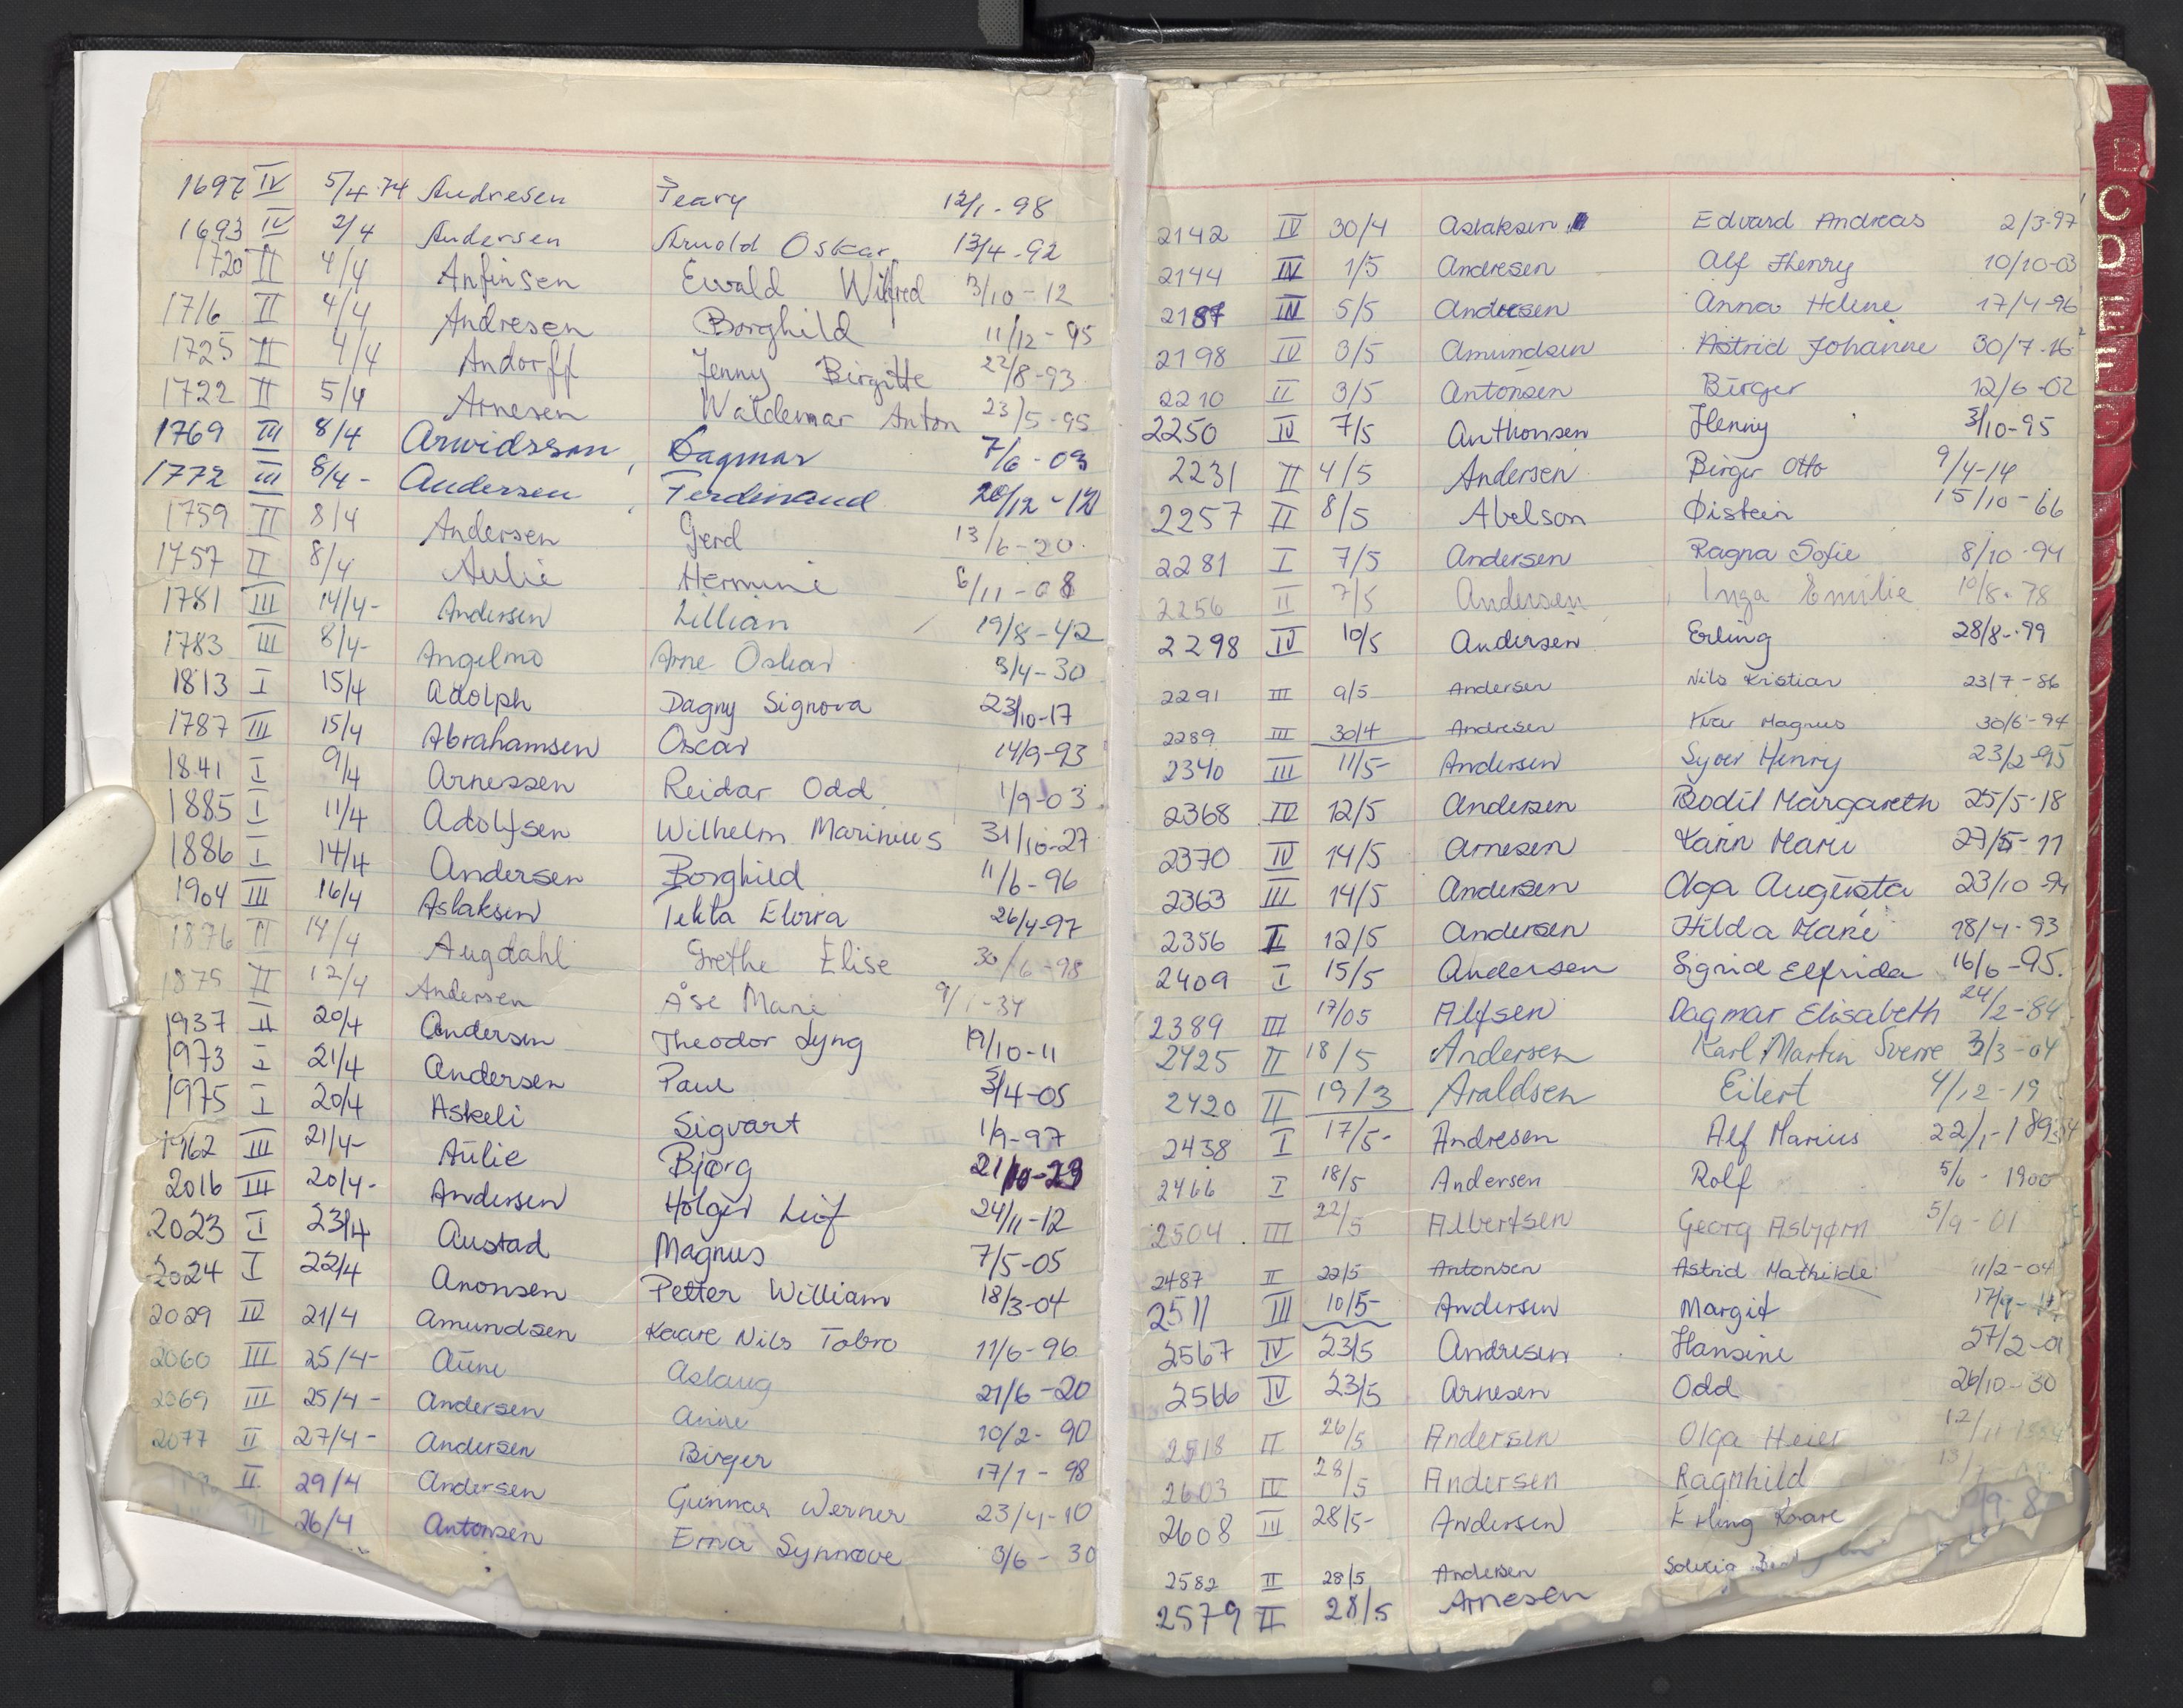 1697 IV 5/4 74 Andresen Peary 12/1-98
1693 IV 2/4 Andersen Arnold Oskar 13/4-92
1720 II 4/4 Anfinsen Ewald Wilfred 3/10-12
1716 II 4/4 Andresen Borghild 11/12-95
1725 II 4/4 Andorff Jenny Birgitte 22/8-93
1722 II 5/4 Arnesen Waldemar Anton 23/5-95
1769 III 8/4 Arwidsson, Dagmar 7/6-03
1772 III 8/4- Andersen, Ferdinand 20/12-12
1759 II 8/4 Andersen Gerd 13/6-20
1757 II 8/4 Aulie Hermine 6/11-08
1781 III 14/4- Andersen Lillian 19/8-42
1783 III 8/4- Angelmo Arne Oskar 3/4-30
1813 I 15/4 Adolph Dagny Signora 23/10-17
1787 III 15/4 Abrahamsen Oscar 14/9-93
1841 I 9/4 Arnessen Reidar Odd 1/9-03
1885 I 11/4 Adolfsen Wilhelm Marinius 31/10-27
1886 I 14/4 Andersen Borghild 11/6-96
1904 III 16/4 Aslaksen Tekla Elvira 26/4-97
1876 II 14/4 Augdahl Grethe Elise 30/6-98
1875 II 12/4 Andersen Åse Marie 9/1-34
1937 II 20/4 Andersen Theodor Lyng 19/10-11
1973 I 21/4 Andersen Paul 3/4-05
1975 I 20/4 Askeli Sigvart 1/9-97
1962 III 21/4- Aulie Bjørg 21/10-23
2016 III 20/4- Andersen Holger Leif 24/11-12
2023 I 23/4 Austad Magnus 7/5-05
2024 I 22/4 Anonsen Petter William 18/3-04
2029 IV 21/4 Amundsen Kaare Nils Tobro 11/6-96
2060 III 25/4- Aune Aslaug 21/6-20
2069 III 25/4- Andersen Anne 10/2-90
2077 II 27/4- Andersen Birger 17/1-98
II 29/4 Andersen Gunnar Werner 23/4-10
26/4 Antonsen Erna Synnøve 3/6-30
2142 IV 30/4 Aslaksen Edvard Andreas 2/3-97
2144 IV 1/5 Andresen Alf Henry 10/10-03
2187 IV 5/5 Andresen Anna Helene 17/4-96
2198 IV 3/5 Amundsen Astrid Johanne 30/7-16
2210 II 3/5 Antonsen Birger 12/6-02
2250 IV 7/5 Anthonsen Henny 3/10-95
2231 II 4/5 Andersen Birger Otto 9/4-14
2257 II 8/5 Abelson Øistein 15/10-66
2281 I 7/5 Andersen Ragna Sofie 8/10-94
2256 II 7/5 Andersen Inga Emilie 10/8-78
2298 IV 10/5 Andersen Erling 28/8-99
2291 III 9/5 Andersen Nils Kristian 23/7-86
2289 III 30/4 Andresen Ivar Magnus 30/6-94
2340 III 11/5- Andersen Syver Henry 23/2-95
2368 IV 12/5 Andersen Bodil Margareth 25/5-18
2370 IV 14/5 Arnesen Karin Marie 27/5-11
2363 III 14/5 Andersen Olga Augusta 23/10-94
2356 I 12/5 Andersen Hilda Marie 18/4-93
2409 I 15/5 Andersen Sigrid Elfrida 16/6-95.
2389 III 17/05 Alfsen Dagmar Elisabeth 24/2-84
2425 II 18/5 Andersen Karl Martin Sverre 3/3-04
2420 II 19/3 Araldsen Eilert 4/12-19
2438 I 17/5- Andresen Alf Marius 22/1-1894
2466 I 18/5 Andersen Rolf 5/6-1900
2504 III 22/5 Albertsen Georg Asbjørn 5/9-01
2487 II 22/5 Antonsen Astrid Mathilde 11/2-04
2511 III 10/5- Andersen Margit 17/9-
2567 IV 23/5 Andresen Hansine 27/2-01
2566 IV 23/5 Arnesen Odd 26/10-30
2518 II 26/5 Andersen Olga Heier 12/11
2603 IV 28/5 Andersen Ragnhild
2608 III 28/5- Andersen Erling Kaare
2582 II 28/5 Andersen Solveig
2579 II 28/5 Arnesen
B
C
D
E
F